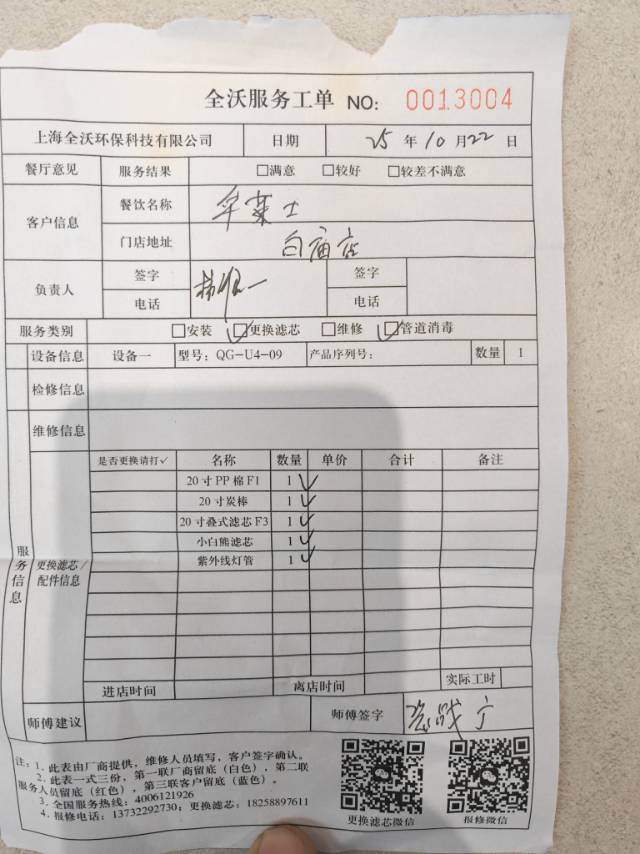 全沃服务工单 NO: 0013004
上海全沃环保科技有限公司 日期 25 年 10 月 22 日
餐厅意见 服务结果 □满意 □较好 □较差不满意
客户信息 餐饮名称 华莱士
门店地址 白庙店
负责人 签字 签字
电话 电话
服务类别 □安装 ☑更换滤芯 □维修 ☑管道消毒
设备信息 设备一 型号: QG-U4-09 产品序列号: 数量 1
检修信息
维修信息
服务信息
更换滤芯/配件信息
是否更换请打✓ 名称 数量 单价 合计 备注
20寸PP棉F1 1 ✓
20寸炭棒 1 ✓
20寸叠式滤芯F3 1 ✓
小白熊滤芯 1 ✓
紫外线灯管 1 ✓
进店时间 离店时间 实际工时
师傅建议 师傅签字
注: 1. 此表由厂商提供, 维修人员填写, 客户签字确认。
2. 此表一式三份, 第一联厂商留底(白色), 第二联
服务人员留底(红色), 第三联客户留底(蓝色)。
3. 全国服务热线: 4006121926
4. 报修电话: 13732292730; 更换滤芯: 18258897611
更换滤芯微信 报修微信